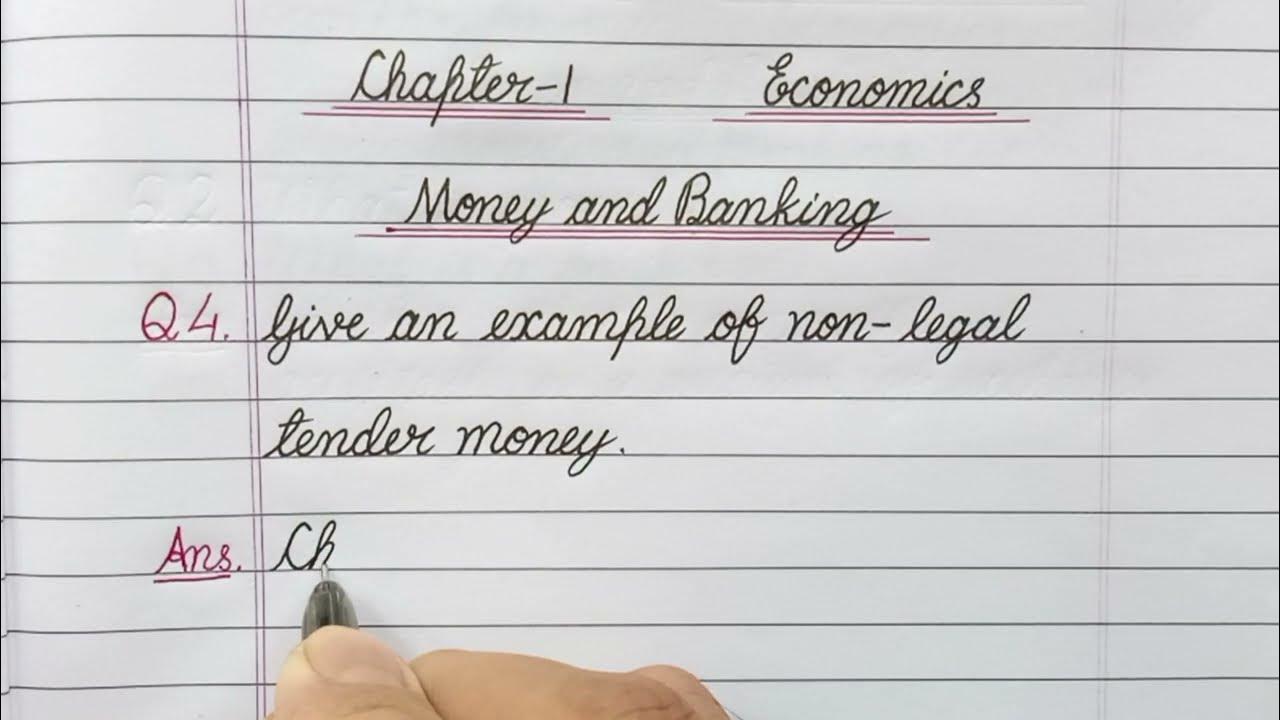 Chapter-1 Economics
Money and Banking
Q4. Give an example of non-legal
tender money.
Ans. Ch